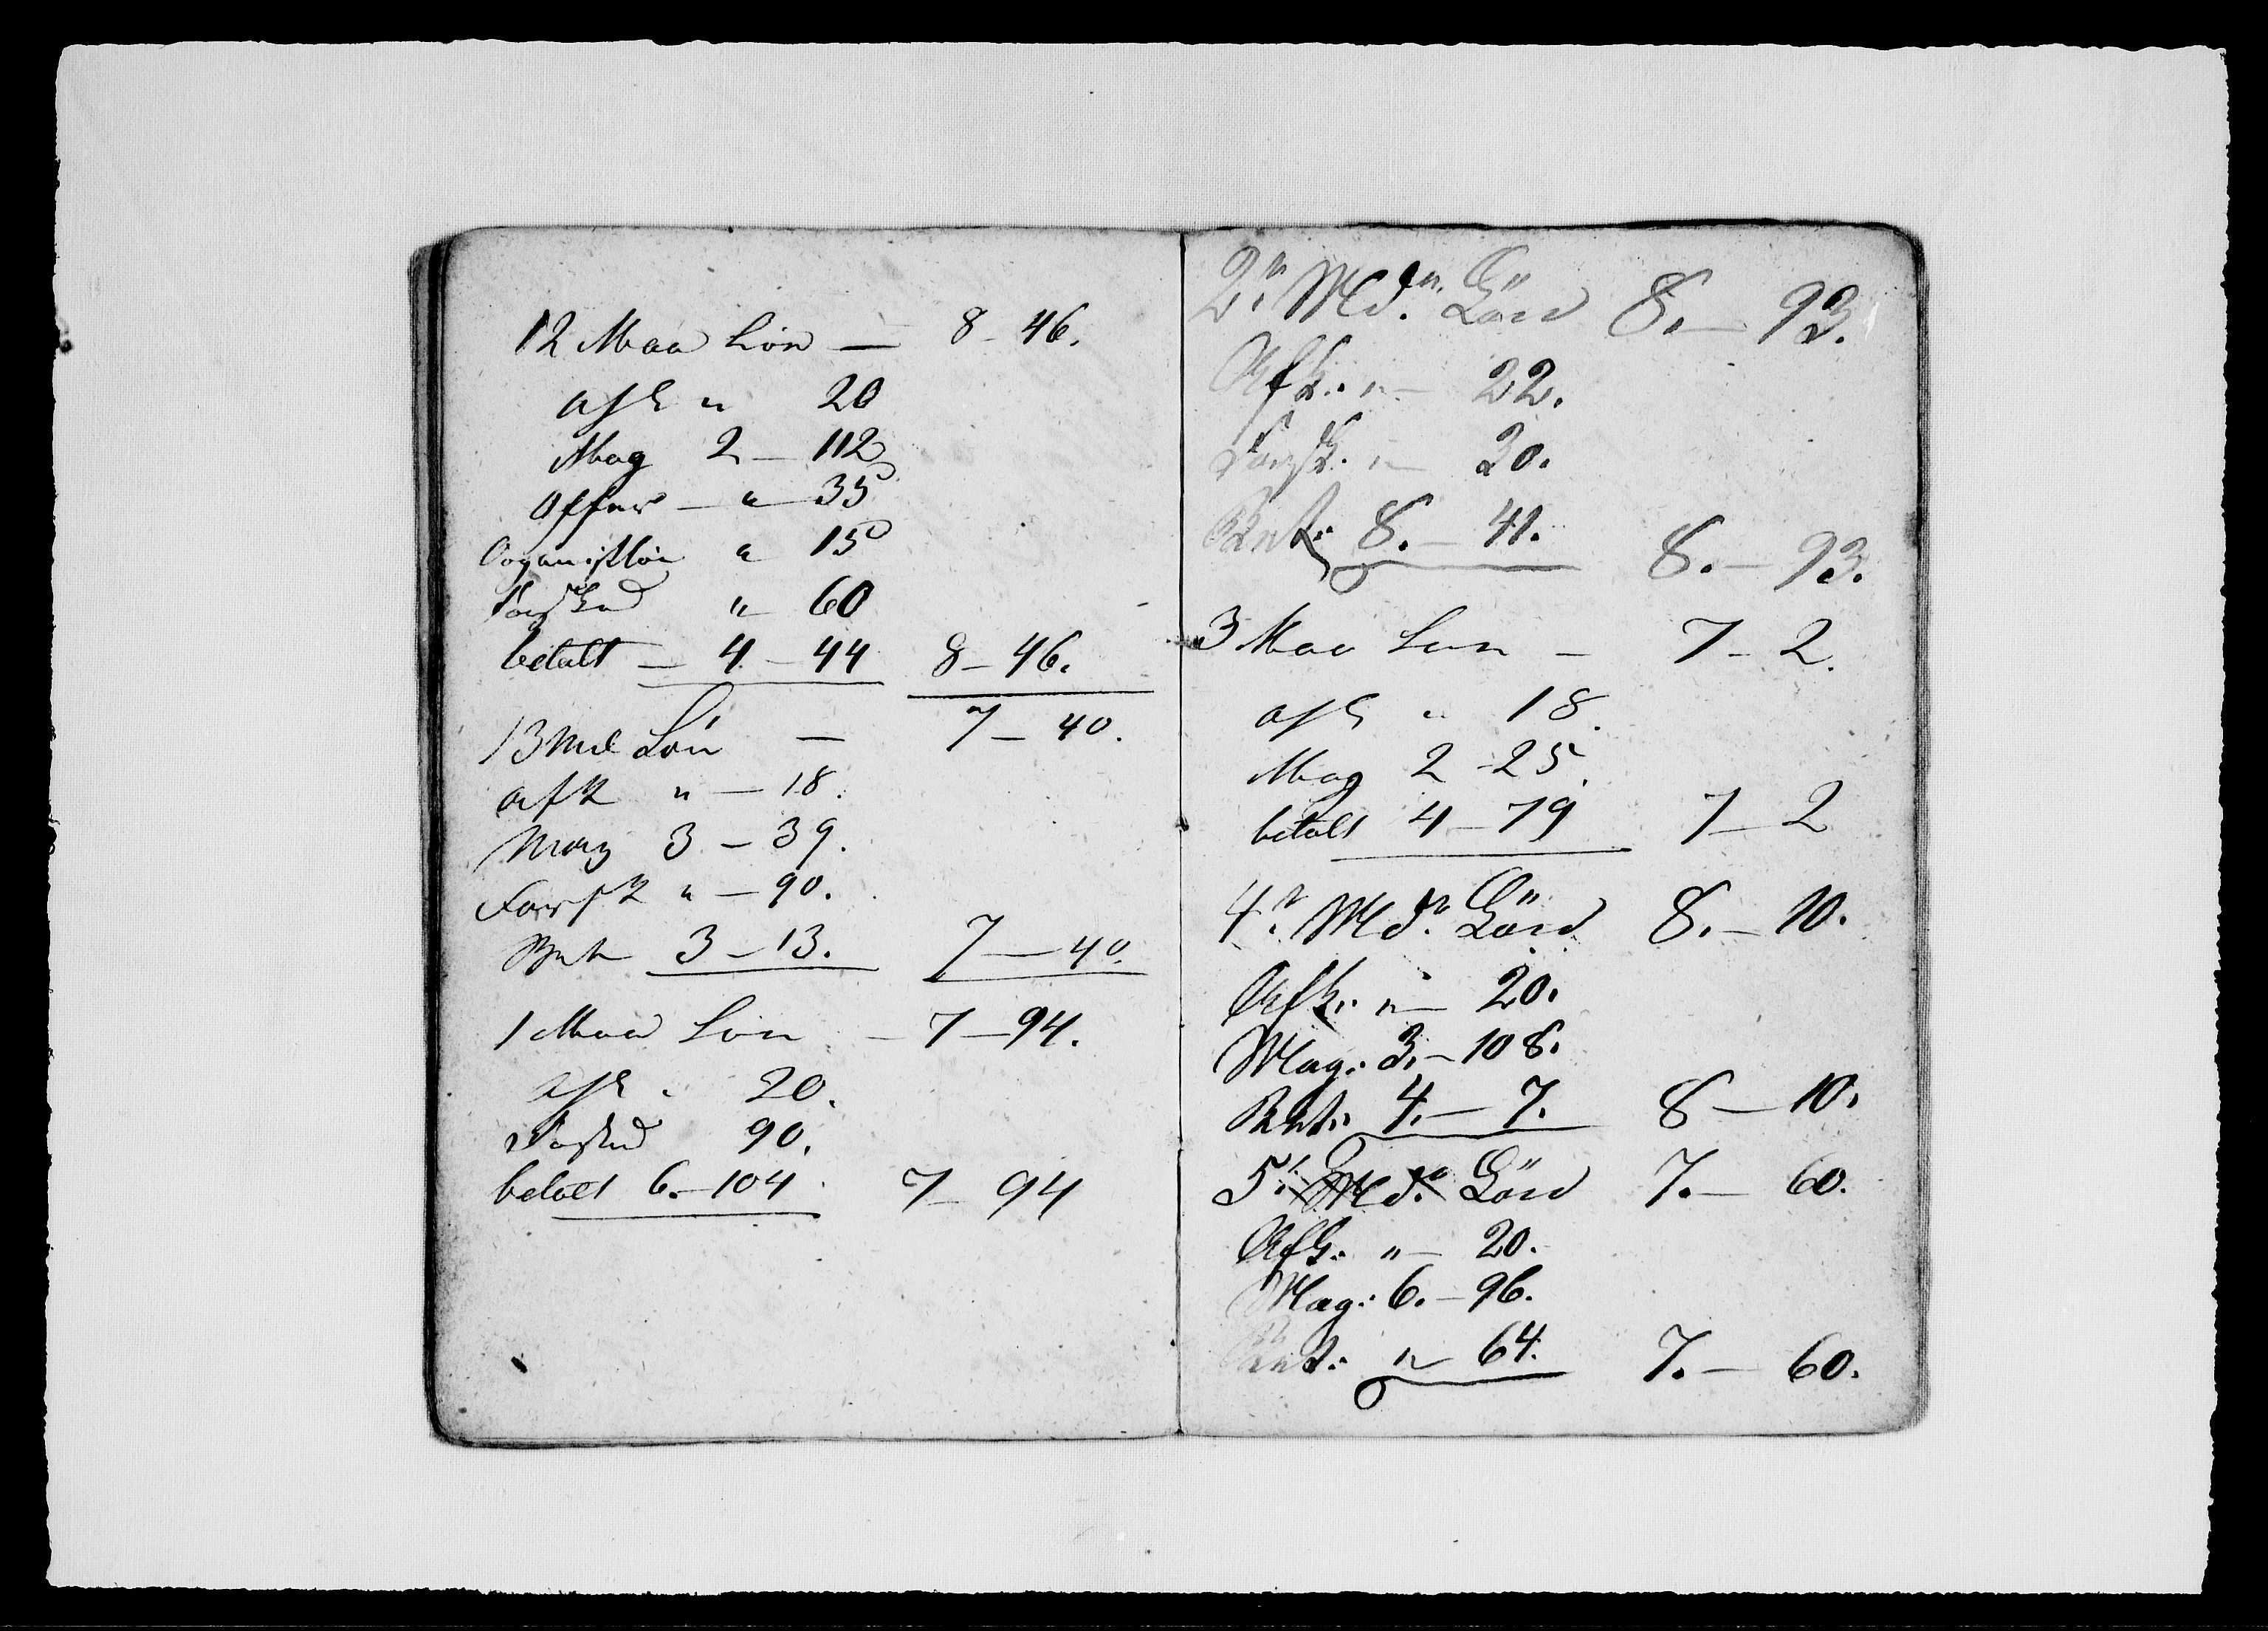 12 Maa Løn — 8 - 46.
afk " 20
Mag 2 - 112
Offer - " - 35
Organistløn " 15
Forskud " 60
betalt - 4 - 44 8 - 46.
13 Md Løn — 7 - 40.
afk " - 18.
Mag 3 - 39.
Forsk " - 90.
Bet 3 - 13. 7 - 40.
1 Maa Løn - 7 - 94.
afk " 20.
Forskud 90.
betalt 6. - 104 7 - 94
2n. Mdn. Lön 8. - 93.
Afk. " - 22.
Forsk. " - 30.
Bet: 8. - 41. 8. - 93.
3 Maa Løn - 7 - 2.
afk " 18.
Mag 2 - 25.
betalt 4 - 79 7 - 2
4n. Mdn. Lön 8. - 10.
Afk. " - 20.
Mag: 3. - 108.
Bet: 4. - 7. 8 - 10.
5. Mdn. Lön 7. - 60.
Afk: " - 20.
Mag: 6. - 96.
Bet: " - 64. 7. - 60.